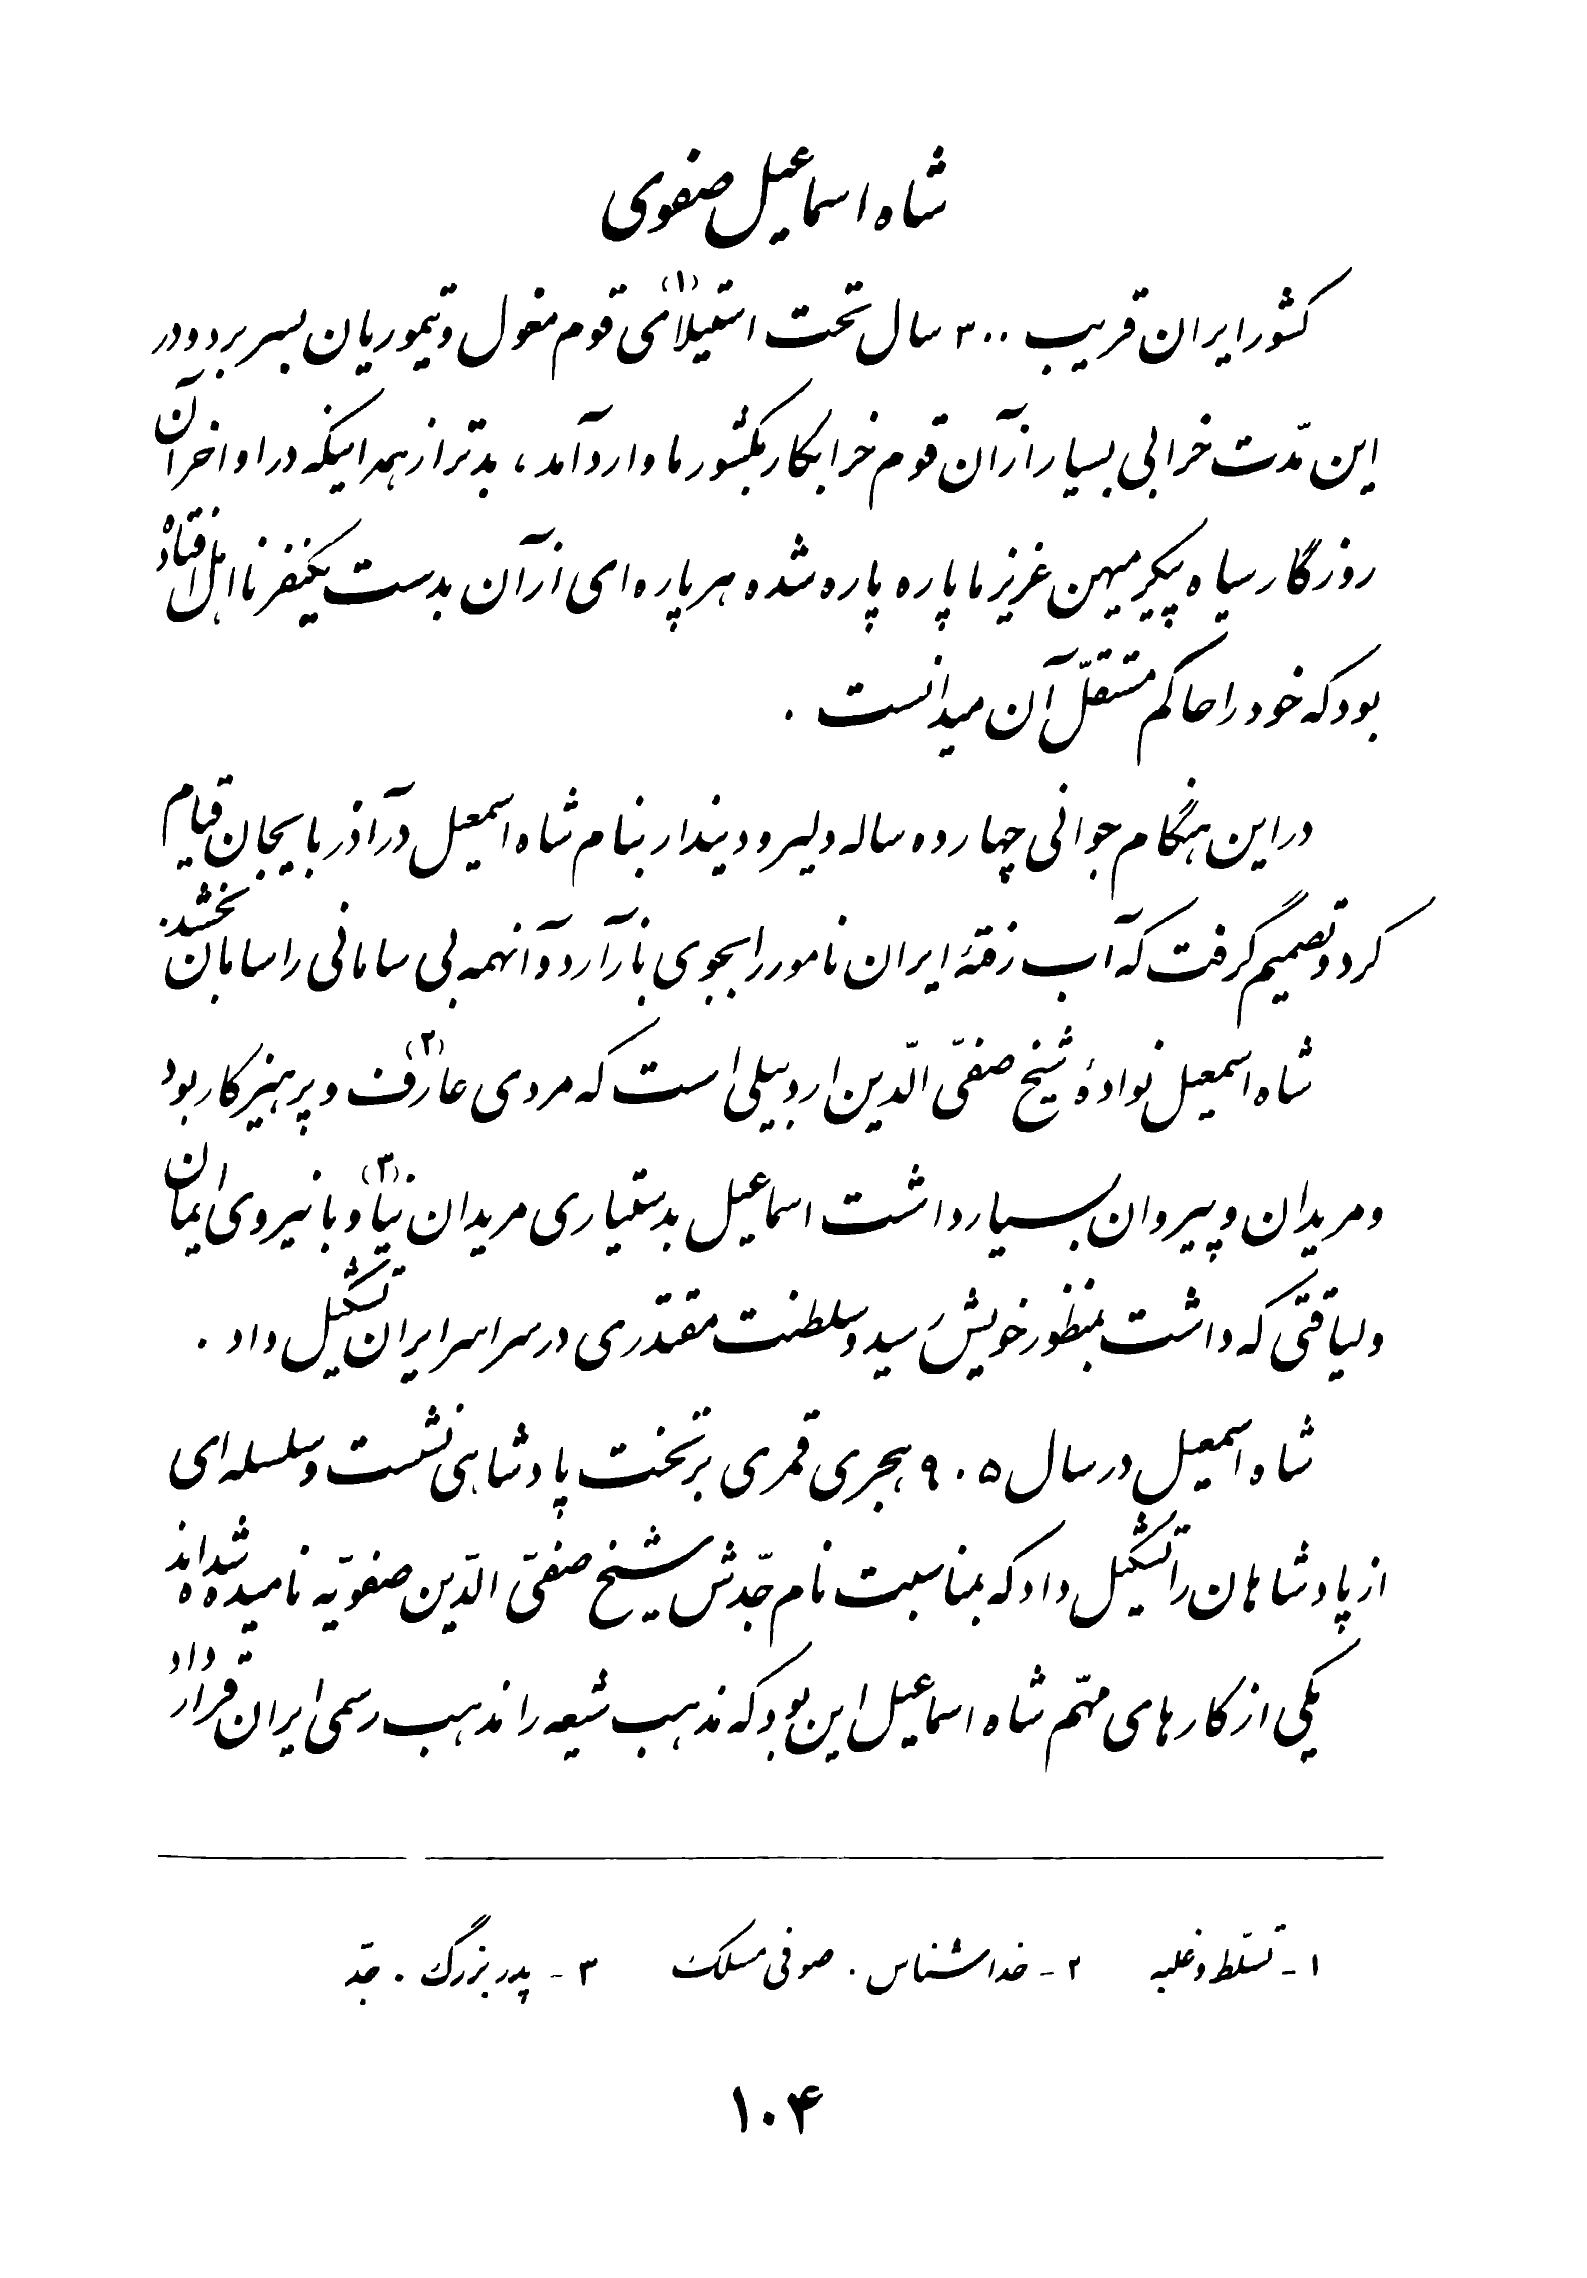 شاه اسماعیل صفوی
کشور ایران قریب ۳۰۰ سال تحت استیلای(۱) قوم مغول و تیموریان بسر برد و در
این مدّت خرابی بسیار از آن قوم خرابکار بکشور ما وارد آمد، بدتر از همه اینکه در اواخر آن
روزگار سیاه پیکر میهن عزیز ما پاره پاره شده و هر پاره‌ای از آن بدست یکنفر نااهل افتاده
بود که خود را حاکم مستقلّ آن میدانست .
در این هنگام جوانی چهارده ساله دلیر و دیندار بنام شاه اسمعیل در آذربایجان قیام
کرد و تصمیم گرفت که آب رفتهٔ ایران نامور را بجوی بازآرد و آنهمه بی سامانی را سامان بخشد.
شاه اسمعیل نوادهٔ شیخ صفیّ الدّین اردبیلی است که مردی عارف(۲) و پرهیزکار بود
و مریدان و پیروان بسیار داشت اسماعیل بدستیاری مریدان نیا(۳) و با نیروی ایمان
و لیاقتی که داشت بمنظور خویش رسید و سلطنت مقتدری در سراسر ایران تشکیل داد .
شاه اسمعیل در سال ۹۰۵ هجری قمری بر تخت پادشاهی نشست و سلسله‌ای
از پادشاهان را تشکیل داد که بمناسبت نام جدّش شیخ صفیّ الدّین صفویّه نامیده شده‌اند
یکی از کارهای مهّم شاه اسماعیل این بود که مذهب شیعه را مذهب رسمی ایران قرار داد
۱- تسلّط و غلبه ۲- خداشناس . صوفی مسلک ۳- پدربزرگ . جدّ
۱۰۴